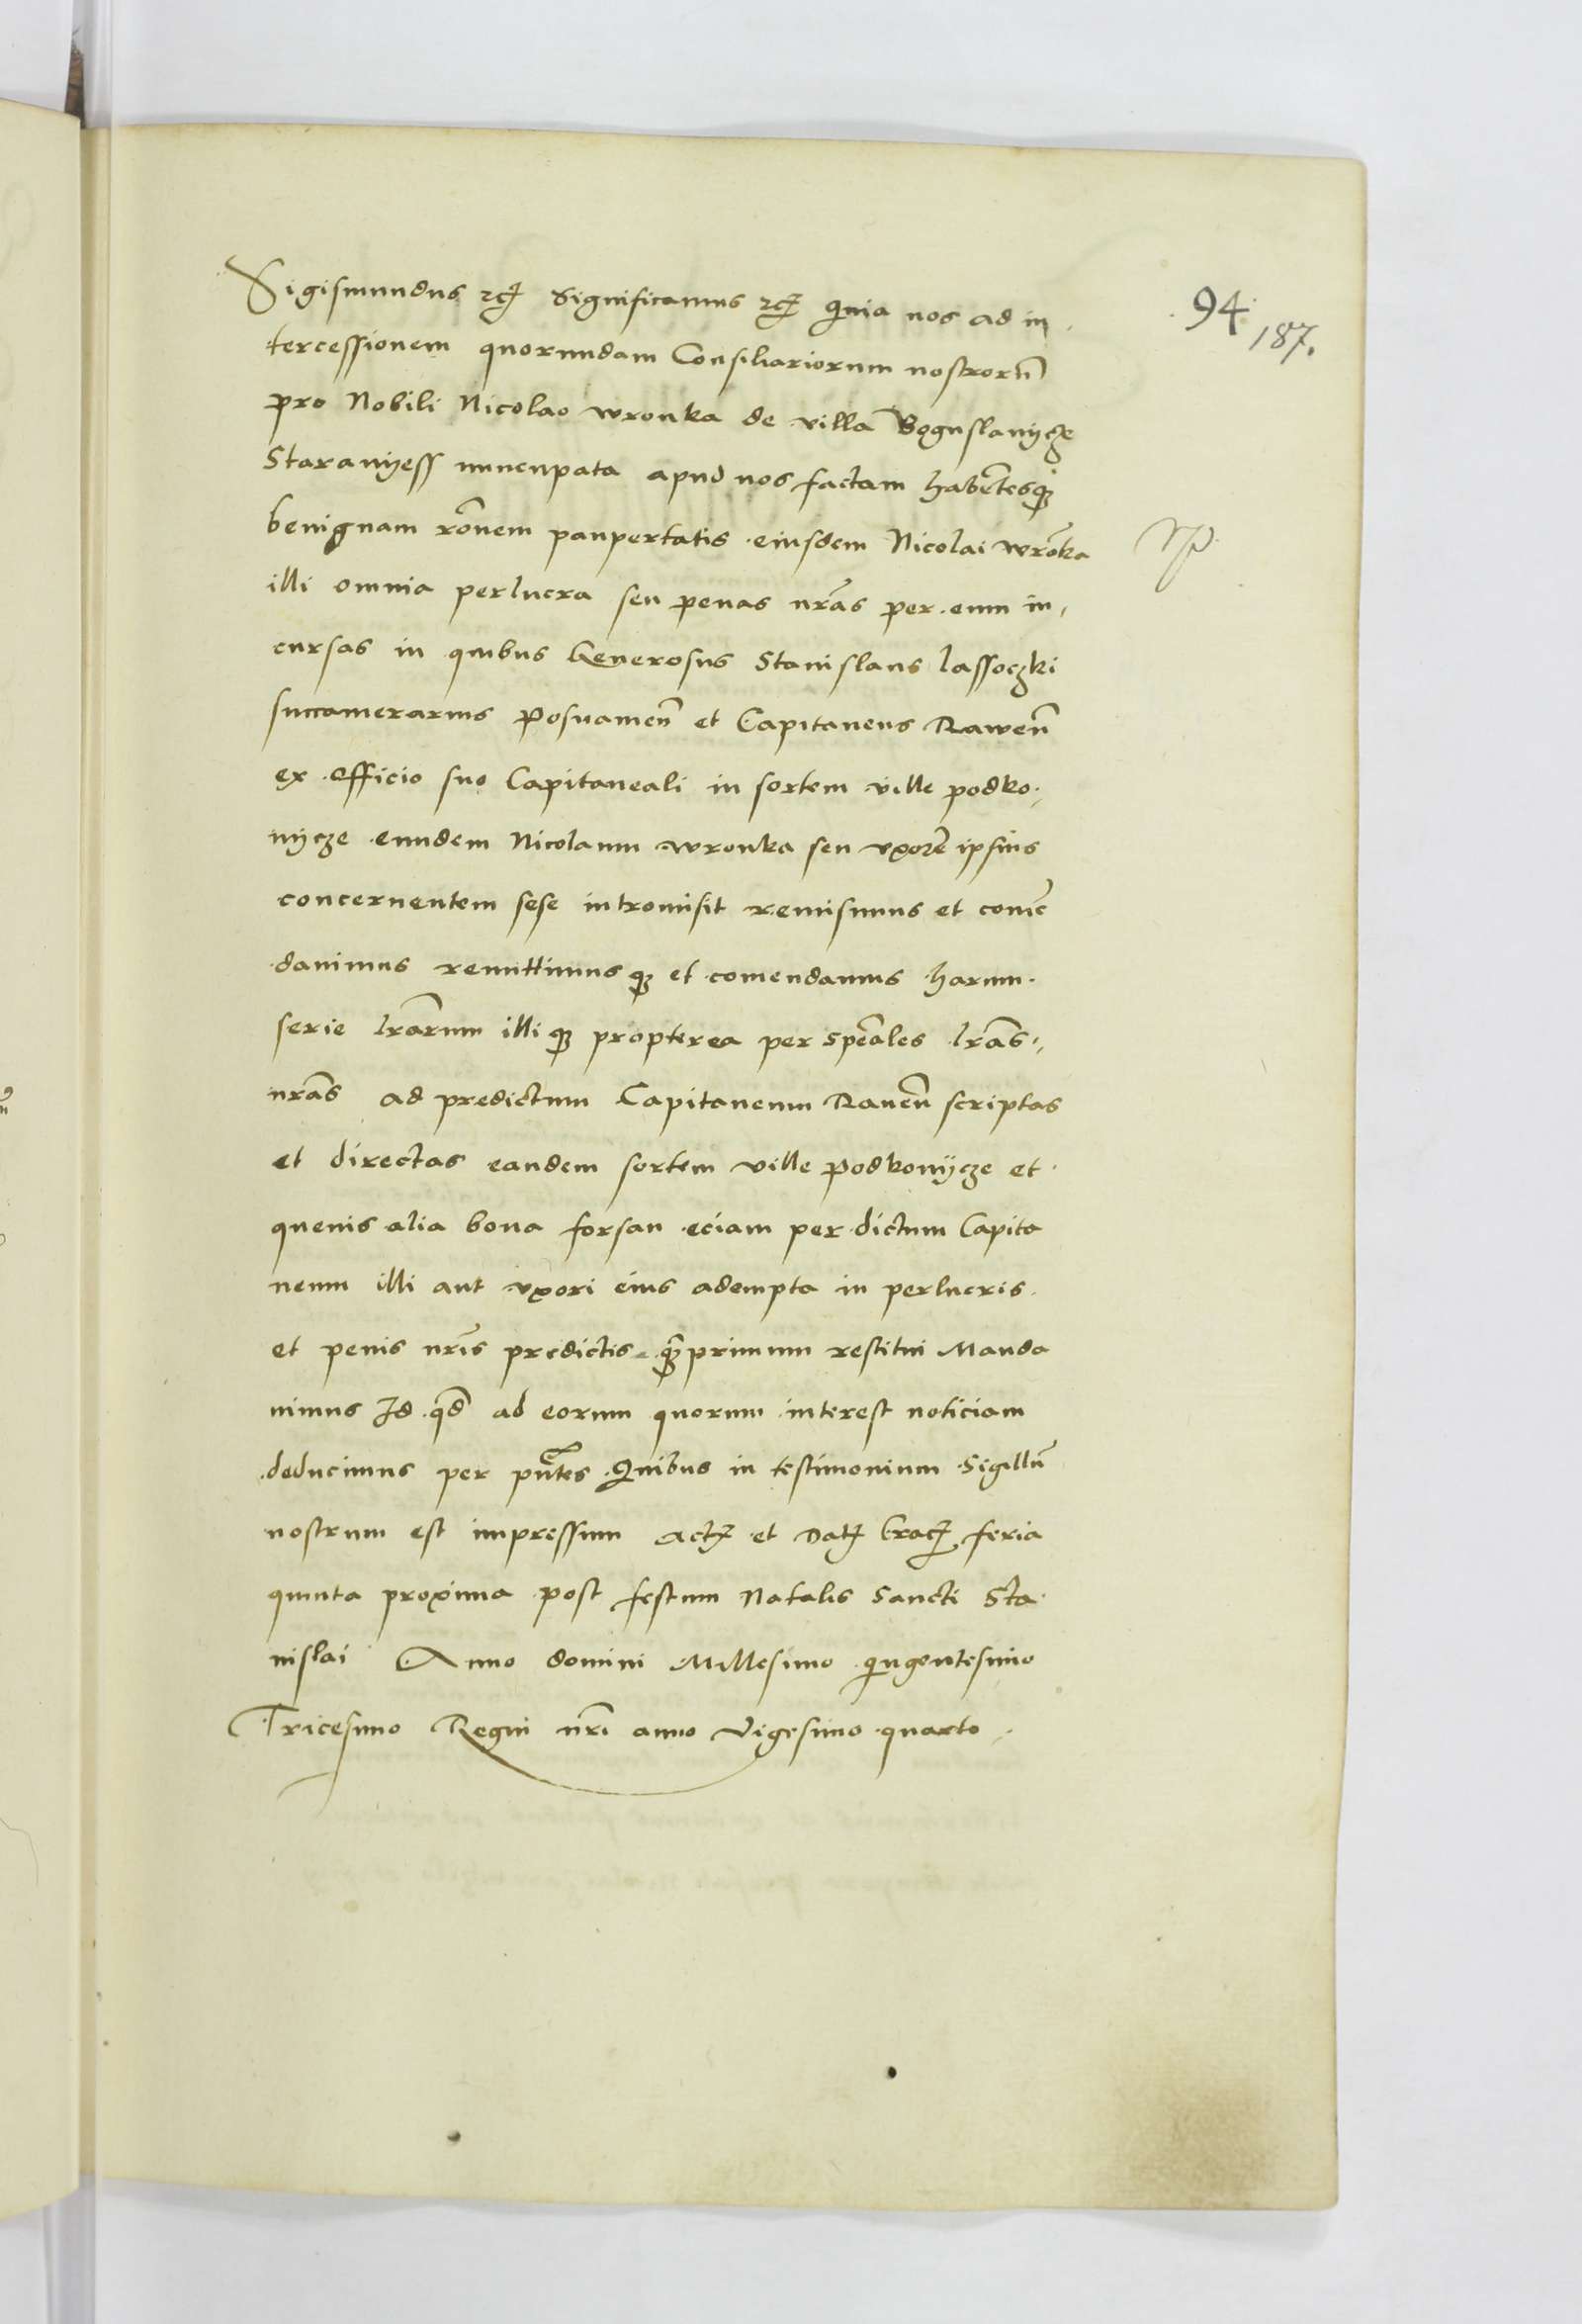 94
187.
Sigismundus etc̃ Significamus etc̃ Quia nos ad in
tercessionem quorundam Consiliariorum nostrorũ
pro Nobili Nicolao wronka de villa Boguslavycze
Starawyess nuncupata apud nos factam habẽtesq;
benignam rõnem paupertatis eiusdem Nicolai wrõka
illi omnia perlucra seu penas nrãs per eum in,
cursas in quibus Generosus Stanislaus lassoczki
succamerarius Posnanieñ et Capitaneus Raweñ
ex Officio suo Capitaneali in sortem ville podko,
nycze eundem Nicolaum wronka seu uxorẽ ipsius
concernentem sese intromisit remisimus et comẽ
davimus remittimusq; et comendamus harum
serie lrãrum illiq; propterea per speciãles lrãs
nrãs ad predictum Capitaneum Raueñ scriptas
et directas eandem sortem ville Podkonycze et
quevis alia bona forsan eciam per dictum Capita
neum illi aut uxori eius adempta in perlucris
et penis nrĩs predictis q̃primum restitui Manda
vimus Id qd̃ ad eorum quorum interest noticiam
deducimus per pñtes Quibus in testimonium Sigillũ
nostrum est impressum Act; et Dat; Crac; feria
quinta proxima post festum Natalis Sancti Sta
nislai Anno domini Millesimo quingentesimo
Tricesimo Regni nrĩ anno Vigesimo quarto